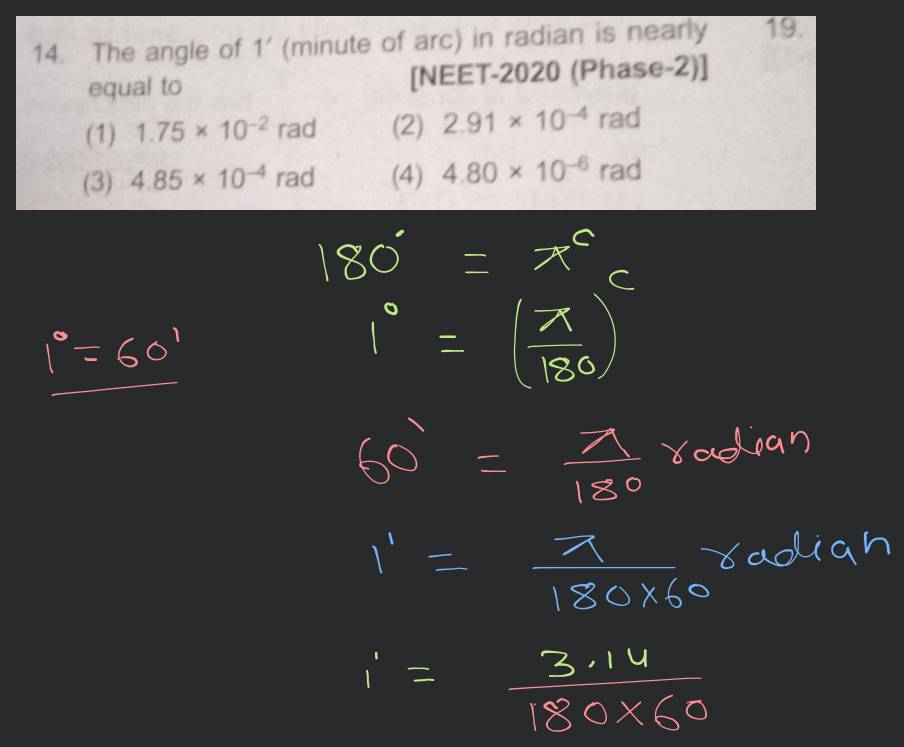 14. The angle of 1′ (minute of arc) in radian is nearly 19.
equal to [NEET-2020 (Phase-2)]
(1) 1.75 × 10⁻² rad (2) 2.91 × 10⁻⁴ rad
(3) 4.85 × 10⁻⁴ rad (4) 4.80 × 10⁻⁶ rad
180° = πᶜ
1° = (π/180)ᶜ
1° = 60'
60' = π/180 radian
1' = π/(180×60) radian
1' = 3.14/(180×60)